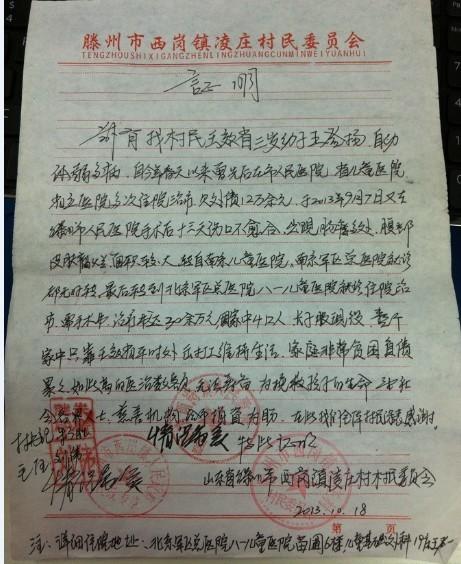 滕州市西岗镇凌庄村民委员会
TENGZHOUSHIXIGANGZHENLINGZHUANGCUNMINWEIYUANHUI
证明
兹有我村民王教省三岁幼子王 扬自幼
体弱多病,自今年春天以来曾先后在市人民医院、省儿童医院、
省立医院多次住院治疗,欠外债12万余元,于2013年9月7日又在
滕州市人民医院手术后十三天伤口不愈合,出现肠 多处,腹部
皮肤 面积较大,经 南京儿童医院、南京军区总医院就诊
都无好转,最后转到北京军区总医院八一儿童医院就诊住院治
疗,需手术 治疗 30余万元,因家中4口人, 长 服现役,整个
家中只靠王教省平时外出打工维持生活,家庭非常贫困,负债
累累,如此高的医治数字无法筹备,为挽救孩子的生命,让社
会各界人士、慈善机构给予捐资为盼,在此我们全体村民深表感谢。
村书记
特此证明
主任
情况属实
情况属实
山东省滕州市西岗镇凌庄村村民委员会
2013.10.18
第 页
注:详细住院地址:北京军区总医院八一儿童医院 6楼儿童 外科19床